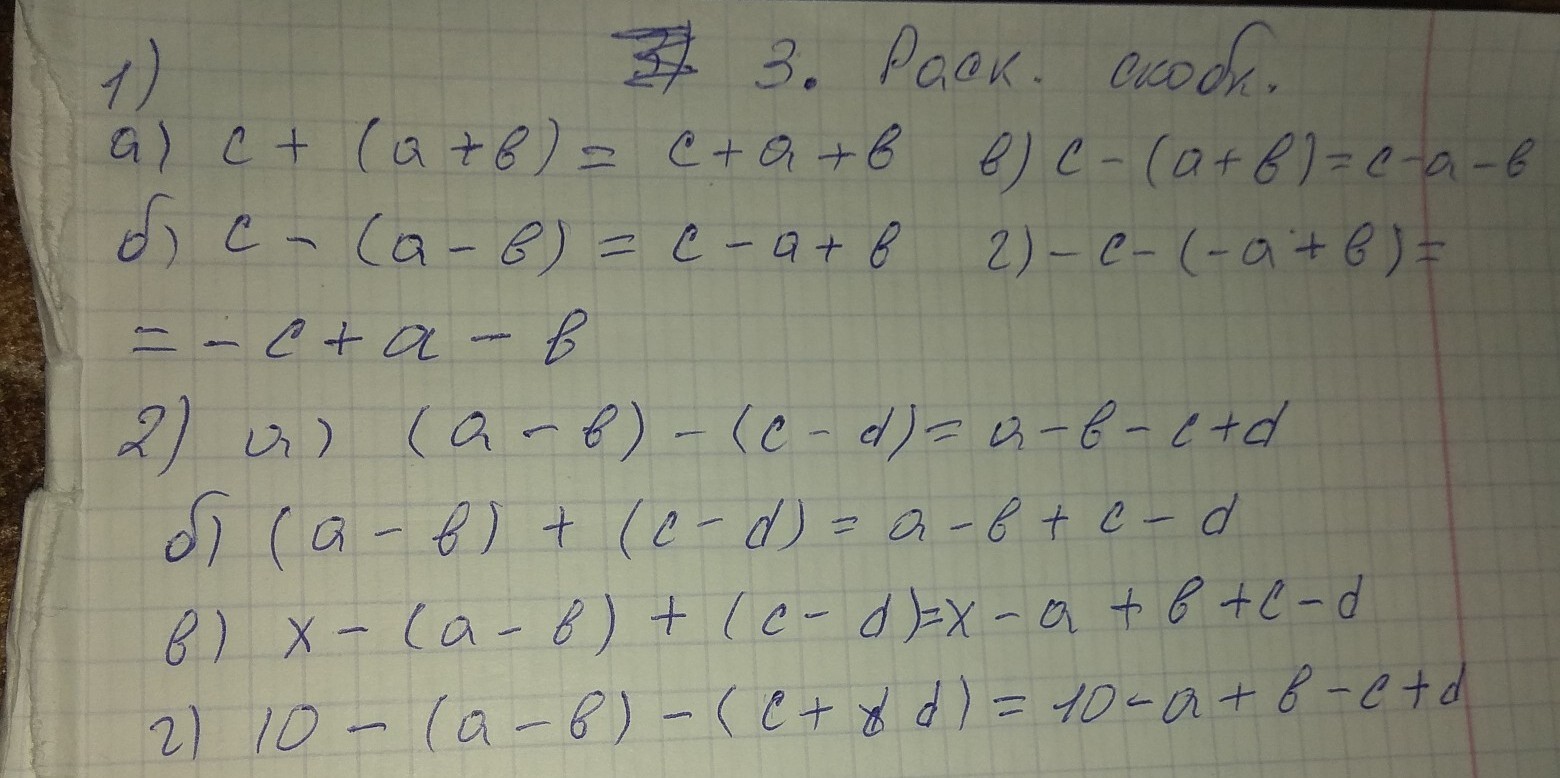 1) 3. Раск. скобк.
а) c + (a + в) = c + a + в в) c - (a + в) = c - a - в
б) c - (a - в) = c - a + в г) - c - (- a + в) =
= - c + a - в
2) а) (a - в) - (c - d) = a - в - c + d
б) (a - в) + (c - d) = a - в + c - d
в) x - (a - в) + (c - d) = x - a + в + c - d
г) 10 - (a - в) - (c + d) = 10 - a + в - c + d